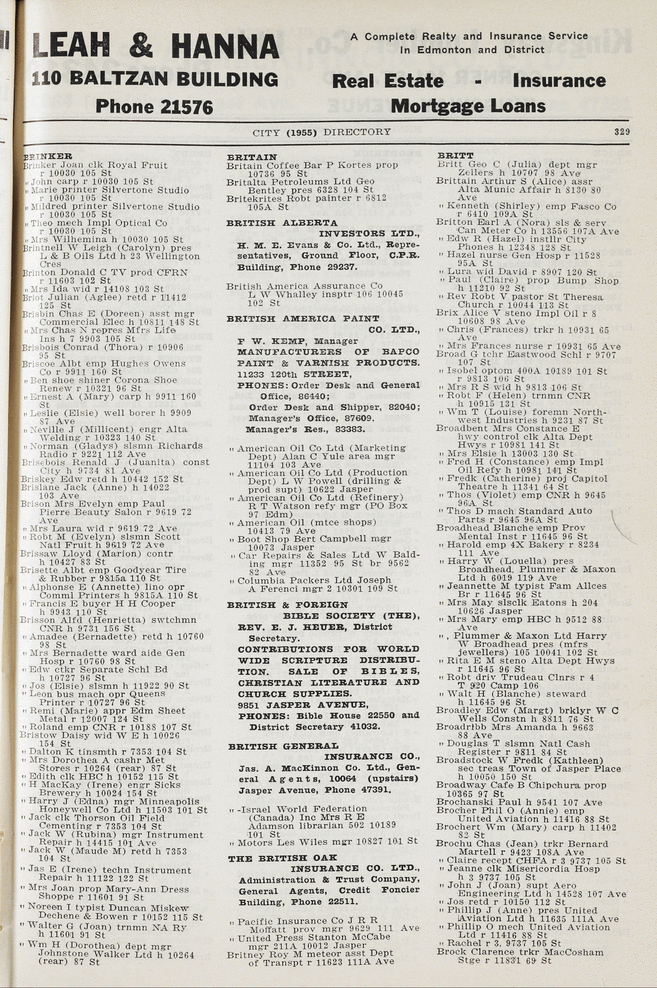 LEAH & HANNA
110 BALTZAN BUILDING
Phone 21576
A Complete Realty and Insurance Service
In Edmonton and District
Real Estate - Insurance
Mortgage Loans
CITY (1955) DIRECTORY 329
BRINKER
Brinker Joan clk Royal Fruit
r 10030 105 St
" John carp r 10030 105 St
" Marie printer Silvertone Studio
r 10030 105 St
" Mildred printer Silvertone Studio
r 10030 105 St
" Theo mech Impl Optical Co
r 10030 105 St
" Mrs Wilhemina h 10030 105 St
Brintnell W Leigh (Carolyn) pres
L & B Oils Ltd h 23 Wellington
Cres
Brinton Donald C TV prod CFRN
r 11603 102 St
" Mrs Ida wid r 14108 103 St
Briot Julian (Aglee) retd r 11412
125 St
Brisbin Chas E (Doreen) asst mgr
Commercial Elec h 10811 148 St
" Mrs Chas N repres Mfrs Life
Ins h 7 9903 105 St
Brisbois Conrad (Thora) r 10906
95 St
Briscoe Albt emp Hughes Owens
Co r 9911 160 St
" Ben shoe shiner Corona Shoe
Renew r 10321 96 St
" Ernest A (Mary) carp h 9911 160
St
" Leslie (Elsie) well borer h 9909
87 Ave
" Neville J (Millicent) engr Alta
Welding r 10323 140 St
" Norman (Gladys) slsmn Richards
Radio r 9221 112 Ave
Brisebois Renald J (Juanita) const
City h 9734 81 Ave
Briskey Edw retd h 10442 152 St
Brislane Jack (Anne) h 14022
103 Ave
Brison Mrs Evelyn emp Paul
Pierre Beauty Salon r 9619 72
Ave
" Mrs Laura wid r 9619 72 Ave
" Robt M (Evelyn) slsmn Scott
Natl Fruit h 9619 72 Ave
Brissaw Lloyd (Marion) contr
h 10427 83 St
Brisette Albt emp Goodyear Tire
& Rubber r 9815A 110 St
" Alphonse E (Annette) lino opr
Comml Printers h 9815A 110 St
" Francis E buyer H H Cooper
h 9943 110 St
Brisson Alfd (Henrietta) swtchmn
CNR h 9731 156 St
" Amadee (Bernadette) retd h 10760
98 St
" Mrs Bernadette ward aide Gen
Hosp r 10760 98 St
" Edw ctkr Separate Schl Bd
h 10727 96 St
" Jos (Elsie) slsmn h 11922 90 St
" Leon bus mach opr Queens
Printer r 10727 96 St
" Remi (Marie) appr Edm Sheet
Metal r 12007 124 St
" Roland emp CNR r 10188 107 St
Bristow Daisy wid W E h 10026
154 St
" Dalton K tinsmth r 7353 104 St
" Mrs Dorothea A cashr Met
Stores r 10264 (rear) 87 St
" Edith clk HBC h 10152 115 St
" H MacKay (Irene) engr Sicks
Brewery h 10024 154 St
" Harry J (Edna) mgr Minneapolis
Honeywell Co Ltd h 11503 101 St
" Jack clk Thorson Oil Field
Cementing r 7353 104 St
" Jack W (Rubina) mgr Instrument
Repair h 14415 101 Ave
" Jack W (Maude M) retd h 7353
104 St
" Jas E (Irene) techn Instrument
Repair h 11122 122 St
" Mrs Joan prop Mary-Ann Dress
Shoppe r 11601 91 St
" Noreen I typist Duncan Miskew
Dechene & Bowen r 10152 115 St
" Walter G (Joan) trnmn NA Ry
h 11601 91 St
" Wm H (Dorothea) dept mgr
Johnstone Walker Ltd h 10264
(rear) 87 St
BRITAIN
Britain Coffee Bar P Kortes prop
10736 95 St
Britalta Petroleums Ltd Geo
Bentley pres 6328 104 St
Britekrites Robt painter r 6812
105A St
BRITISH ALBERTA
INVESTORS LTD.,
H. M. E. Evans & Co. Ltd., Repre-
sentatives, Ground Floor, C.P.R.
Building, Phone 29237.
British America Assurance Co
L W Whalley insptr 106 10045
102 St
BRITISH AMERICA PAINT
CO. LTD.,
F W. KEMP, Manager
MANUFACTURERS OF BAPCO
PAINT & VARNISH PRODUCTS.
11233 120th STREET,
PHONES: Order Desk and General
Office, 86440;
Order Desk and Shipper, 82040;
Manager's Office, 87609.
Manager's Res., 83383.
" American Oil Co Ltd (Marketing
Dept) Alan C Yule area mgr
11104 103 Ave
" American Oil Co Ltd (Production
Dept) L W Powell (drilling &
prod supt) 10622 Jasper
" American Oil Co Ltd (Refinery)
R T Watson refy mgr (PO Box
97 Edm)
" American Oil (mtce shops)
10413 79 Ave
" Boot Shop Bert Campbell mgr
10073 Jasper
" Car Repairs & Sales Ltd W Bald-
ing mgr 11352 95 St br 9562
82 Ave
" Columbia Packers Ltd Joseph
A Ferenci mgr 2 10301 109 St
BRITISH & FOREIGN
BIBLE SOCIETY (THE),
REV. E. J. HEUER, District
Secretary.
CONTRIBUTIONS FOR WORLD
WIDE SCRIPTURE DISTRIBU-
TION. SALE OF BIBLES,
CHRISTIAN LITERATURE AND
CHURCH SUPPLIES.
9851 JASPER AVENUE,
PHONES: Bible House 22550 and
District Secretary 41032.
BRITISH GENERAL
INSURANCE CO.,
Jas. A. MacKinnon Co. Ltd., Gen-
eral Agents, 10064 (upstairs)
Jasper Avenue, Phone 47391.
" -Israel World Federation
(Canada) Inc Mrs R E
Adamson librarian 502 10189
101 St
" Motors Les Wiles mgr 10827 101 St
THE BRITISH OAK
INSURANCE CO. LTD.,
Administration & Trust Company,
General Agents, Credit Foncier
Building, Phone 22511.
" Pacific Insurance Co J R R
Moffatt prov mgr 9629 111 Ave
" United Press Stanton McCabe
mgr 211A 10012 Jasper
Britney Roy M meteor asst Dept
of Transpt r 11623 111A Ave
BRITT
Britt Geo C (Julia) dept mgr
Zellers h 10707 98 Ave
Brittain Arthur S (Alice) assr
Alta Munic Affair h 8130 80
Ave
" Kenneth (Shirley) emp Fasco Co
r 6410 109A St
Britton Earl A (Nora) sls & serv
Can Meter Co h 13556 107A Ave
" Edw R (Hazel) instllr City
Phones h 12348 128 St
" Hazel nurse Gen Hosp r 11528
95A St
" Lura wid David r 8907 120 St
" Paul (Claire) prop Bump Shop
h 11210 92 St
" Rev Robt V pastor St Theresa
Church r 10044 113 St
Brix Alice V steno Impl Oil r 8
10608 98 Ave
" Chris (Frances) trkr h 10931 65
Ave
" Mrs Frances nurse r 10931 65 Ave
Broad G tchr Eastwood Schl r 9707
107 St
" Isobel optom 400A 10189 101 St
r 9813 106 St
" Mrs R S wid h 9813 106 St
" Robt F (Helen) trnmn CNR
h 10915 131 St
" Wm T (Louise) foremn North-
west Industries h 9231 87 St
Broadbent Mrs Constance E
hwy control clk Alta Dept
Hwys r 10981 141 St
" Mrs Elsie h 13003 130 St
" Fred H (Constance) emp Impl
Oil Refy h 10981 141 St
" Fredk (Catherine) proj Capitol
Theatre h 11341 64 St
" Thos (Violet) emp CNR h 9645
96A St
" Thos D mach Standard Auto
Parts r 9645 96A St
Broadhead Blanche emp Prov
Mental Inst r 11645 96 St
" Harold emp 4X Bakery r 8234
111 Ave
" Harry W (Louella) pres
Broadhead, Plummer & Maxon
Ltd h 6019 119 Ave
" Jeannette M typist Fam Allces
Br r 11645 96 St
" Mrs May slsclk Eatons h 204
10626 Jasper
" Mrs Mary emp HBC h 9512 88
Ave
" , Plummer & Maxon Ltd Harry
W Broadhead pres (mfrs
jewellers) 105 10041 102 St
" Rita E M steno Alta Dept Hwys
r 11645 96 St
" Robt driv Trudeau Clnrs r 4
T 920 Camp 106
" Walt H (Blanche) steward
h 11645 96 St
Broadley Edw (Margt) brklyr W C
Wells Constn h 8811 76 St
Broadribb Mrs Amanda h 9663
88 Ave
" Douglas T slsmn Natl Cash
Register r 9811 84 St
Broadstock W Fredk (Kathleen)
sec treas Town of Jasper Place
h 10050 150 St
Broadway Cafe B Chipchura prop
10365 97 St
Brochanski Paul h 9541 107 Ave
Brocher Phil O (Annie) emp
United Aviation h 11416 88 St
Brochert Wm (Mary) carp h 11402
82 St
Brochu Chas (Jean) trkr Bernard
Martell r 9423 108A Ave
" Claire recept CHFA r 3 9737 105 St
" Jeanne clk Misericordia Hosp
h 3 9737 105 St
" John J (Joan) supt Aero
Engineering Ltd h 14528 107 Ave
" Jos retd r 10150 112 St
" Phillip J (Anne) pres United
Aviation Ltd h 11635 111A Ave
" Phillip O mech United Aviation
Ltd r 11416 88 St
" Rachel r 3, 9737 105 St
Brock Clarence trkr MacCosham
Stge r 11831 69 St